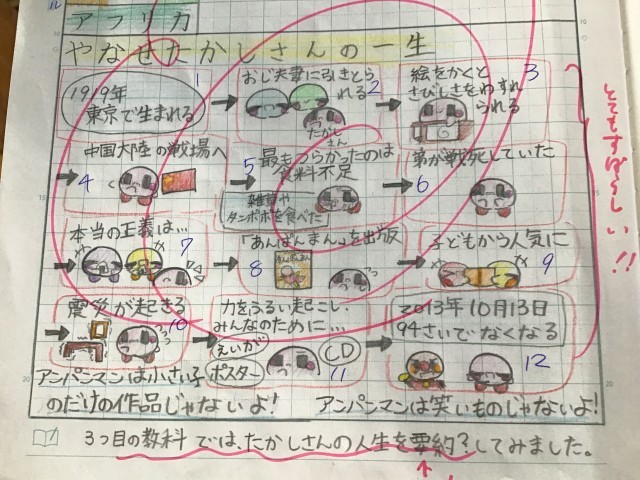 アフリカ
やなせたかしさんの一生
1
1919年
東京で生まれる
おじ夫妻に引きとら
れる
2
たかし
さん
絵をかくと
さびしさをわすれ
られる
3
中国大陸の戦場へ
4
5
最もつらかったのは
食料不足
雑草や
タンポポを食べた
弟が戦死していた
6
本当の正義は…
7
「あんぱんまん」を出版
8
あんぱんまん
子どもから人気に
9
震災が起きる
10
力をふるい起こし、
みんなのために…
えいが
ポスター
CD
11
2013年10月13日
94さいでなくなる
12
アンパンマンは小さい子
のだけの作品じゃないよ！
アンパンマンは笑いものじゃないよ！
3つ目の教科では、たかしさんの人生を要約?してみました。
とてもすばらしい!!